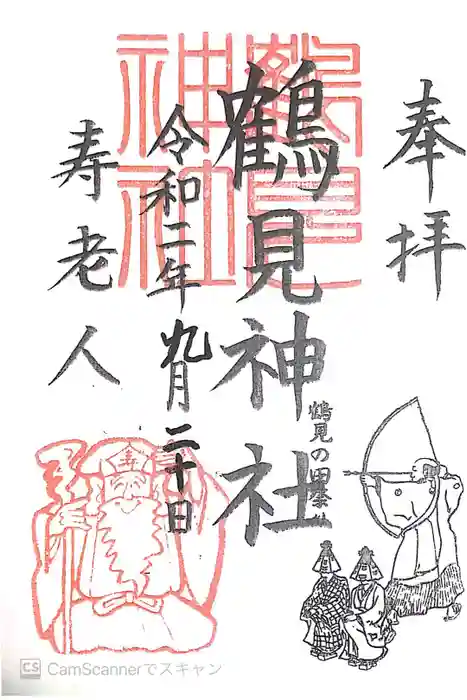 奉拝
鶴見神社
鶴見神社
鶴見の田祭り
令和二年九月二十日
寿老人
寿
CS CamScannerでスキャン